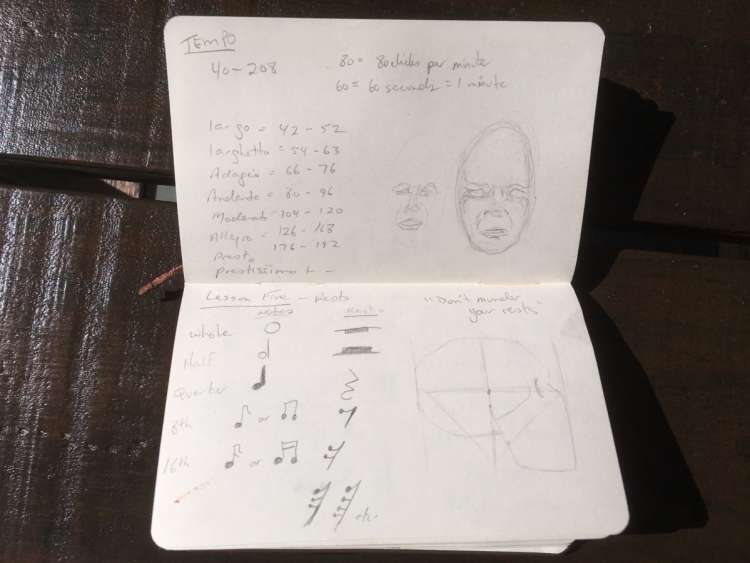 TEMPO
40-208
80 = 80 clicks per minute
60 = 60 seconds = 1 minute
largo = 42 - 52
larghetto = 54 - 63
Adagio = 66 - 76
Andante = 80 - 96
Moderato = 104 - 120
Allegro = 126 - 168
Presto 176 - 192
prestissimo + -
Lesson Five - Rests
Notes Rests
"Don't murder
your rests"
whole
Half
Quarter
8th or
16th or
etc.